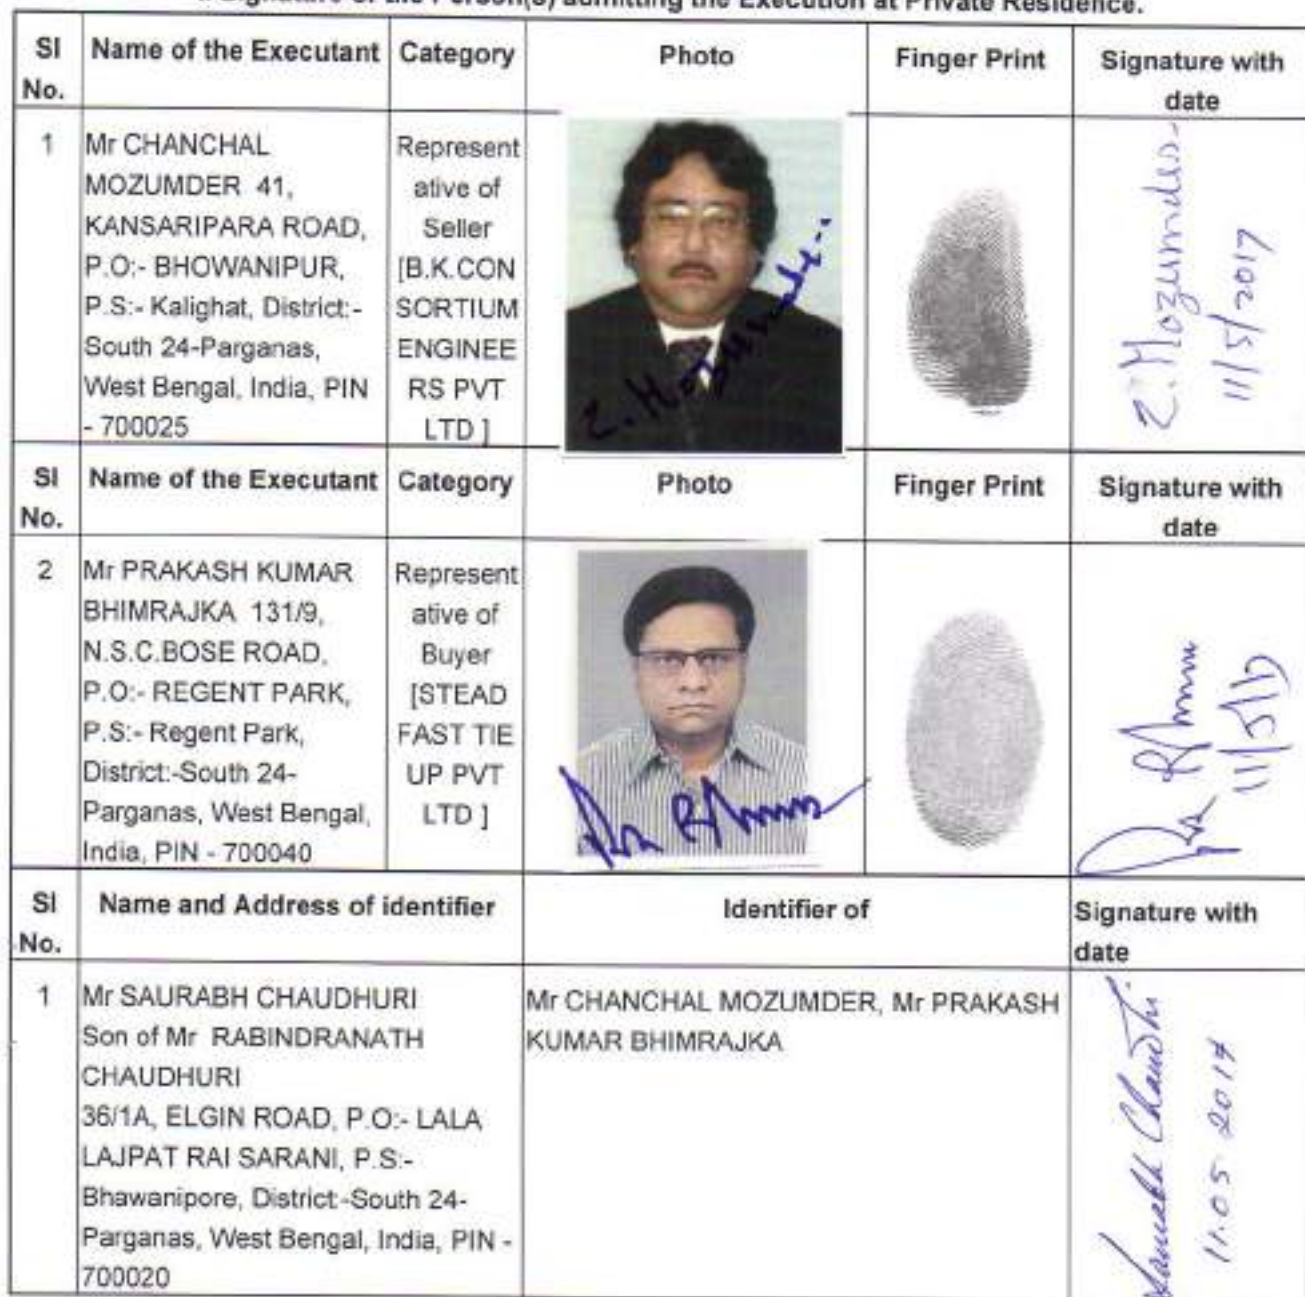 Signature of the Person(s) admitting the Execution at Private Residence.
Sl No.
Name of the Executant
Category
Photo
Finger Print
Signature with date
1
Mr CHANCHAL
MOZUMDER 41,
KANSARIPARA ROAD,
P.O:- BHOWANIPUR,
P.S:- Kalighat, District:-
South 24-Parganas,
West Bengal, India, PIN
- 700025
Represent
ative of
Seller
[B.K.CON
SORTIUM
ENGINEE
RS PVT
LTD ]
C. Mozumder
C. Mozumder
11/5/2017
Sl No.
Name of the Executant
Category
Photo
Finger Print
Signature with date
2
Mr PRAKASH KUMAR
BHIMRAJKA 131/9,
N.S.C.BOSE ROAD,
P.O:- REGENT PARK,
P.S:- Regent Park,
District:-South 24-
Parganas, West Bengal,
India, PIN - 700040
Represent
ative of
Buyer
[STEAD
FAST TIE
UP PVT
LTD ]
11/5/17
Sl No.
Name and Address of identifier
Identifier of
Signature with
date
1
Mr SAURABH CHAUDHURI
Son of Mr RABINDRANATH
CHAUDHURI
36/1A, ELGIN ROAD, P.O:- LALA
LAJPAT RAI SARANI, P.S:-
Bhawanipore, District:-South 24-
Parganas, West Bengal, India, PIN -
700020
Mr CHANCHAL MOZUMDER, Mr PRAKASH
KUMAR BHIMRAJKA
Saurabh Chaudhuri
11.05.2017